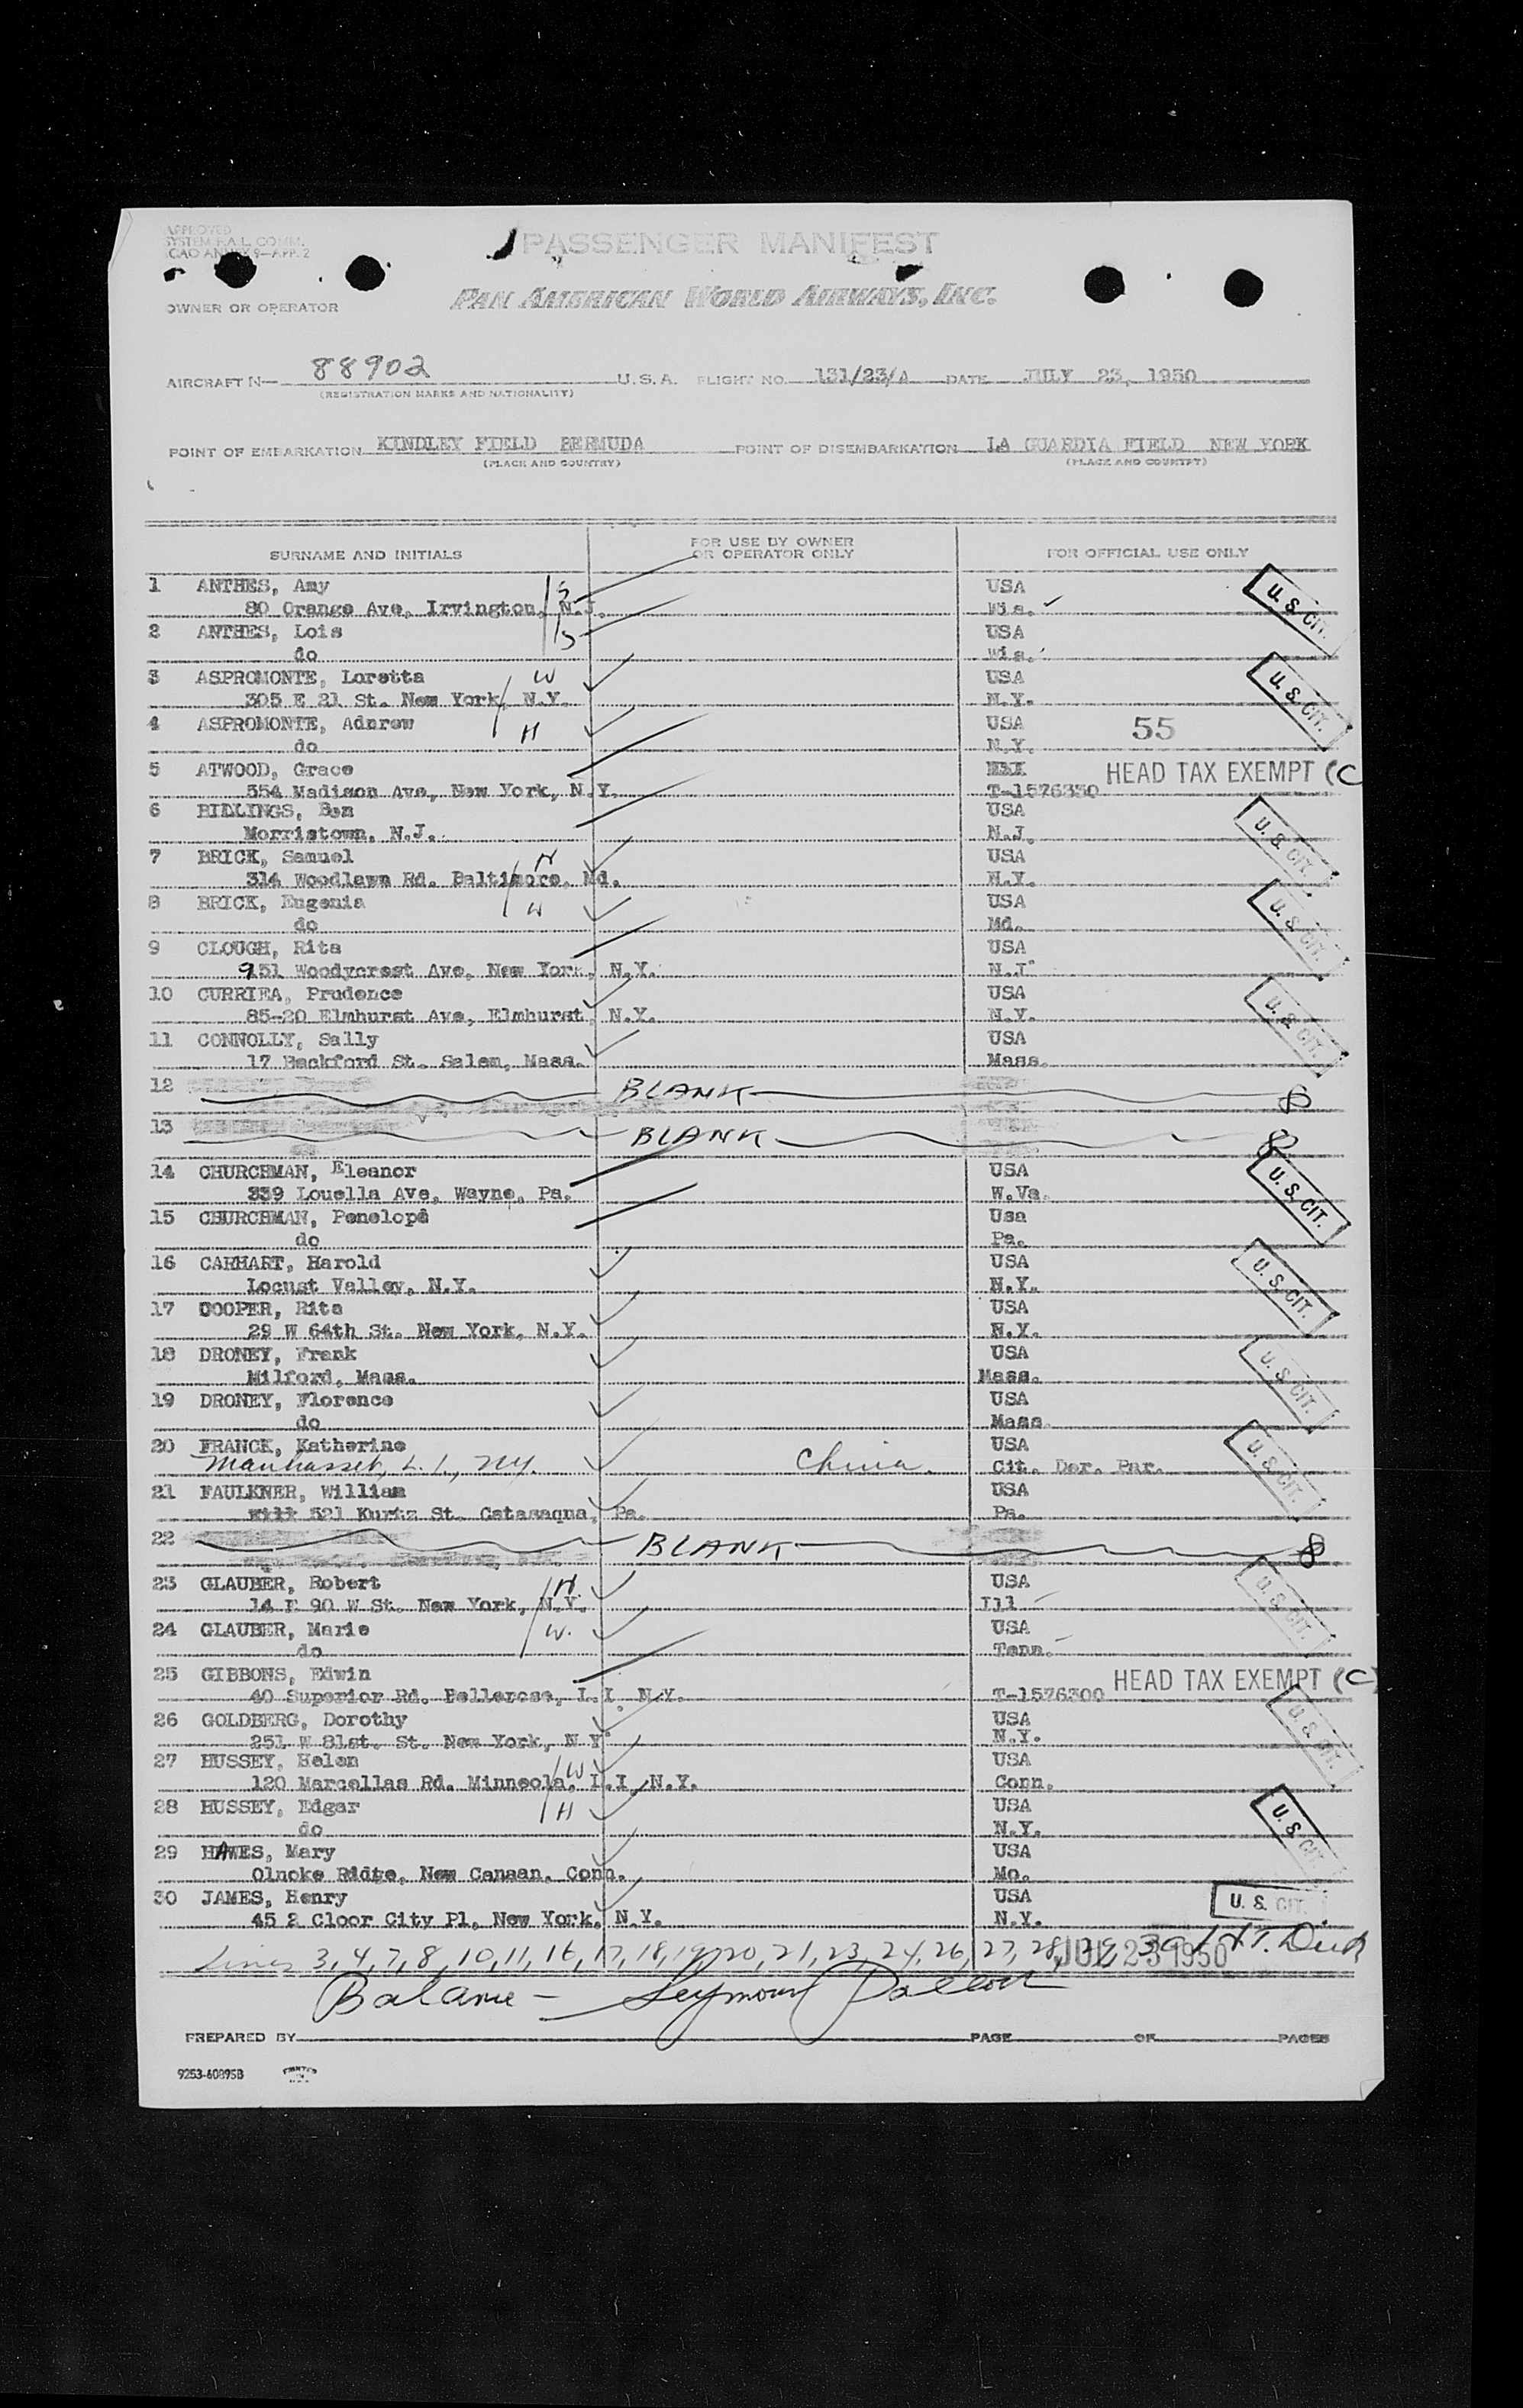 APPROVED
SYSTEM FAL COMM.
ICAO ANNEX 9—APP. 2
PASSENGER MANIFEST
OWNER OR OPERATOR PAN AMERICAN WORLD AIRWAYS, INC.
AIRCRAFT N— 88902 U.S.A. FLIGHT NO. 131/23/A DATE JULY 23, 1950
(REGISTRATION MARKS AND NATIONALITY)
POINT OF EMBARKATION KINDLEY FIELD BERMUDA POINT OF DISEMBARKATION LA GUARDIA FIELD NEW YORK
(PLACE AND COUNTRY) (PLACE AND COUNTRY)
SURNAME AND INITIALS FOR USE BY OWNER OR OPERATOR ONLY FOR OFFICIAL USE ONLY
1 ANTHES, Amy S USA
80 Orange Ave, Irvington, N.J. Wis. U.S. CIT.
2 ANTHES, Lois S USA
do Wis.
3 ASPROMONTE, Loretta W USA
305 E 21 St. New York, N.Y. N.Y. U.S. CIT.
4 ASPROMONTE, Adnrew H USA 55
do N.Y.
5 ATWOOD, Grace HEAD TAX EXEMPT (C
554 Madison Ave, New York, N.Y. T-1576350
6 BILLINGS, Ben USA
Morristown, N.J. N.J. U.S. CIT.
7 BRICK, Samuel H USA
314 Woodlawn Rd. Baltimore, Md. N.Y.
8 BRICK, Eugenia W USA
do Md. U.S. CIT.
9 CLOUGH, Rita USA
951 Woodycrest Ave, New York, N.Y. N.J.
10 CURRIEA, Prudence USA
85-20 Elmhurst Ave, Elmhurst, N.Y. N.Y. U.S. CIT.
11 CONNOLLY, Sally USA
17 Beckford St. Salem, Mass. Mass.
12 BLANK 8
13 BLANK 8
14 CHURCHMAN, Eleanor USA
339 Louella Ave, Wayne, Pa. W.Va. U.S. CIT.
15 CHURCHMAN, Penelope Usa
do Pa.
16 CARHART, Harold USA
Locust Valley, N.Y. N.Y. U.S. CIT.
17 COOPER, Rita USA
29 W 64th St. New York, N.Y. N.Y.
18 DRONEY, Frank USA
Milford, Mass. Mass. U.S. CIT.
19 DRONEY, Florence USA
do Mass.
20 FRANCK, Katherine USA
Manhasset, L.I., N.Y. China. Cit. Der. Par. U.S. CIT.
21 FAULKNER, William USA
521 Kurtz St. Catasaqua, Pa. Pa.
22 BLANK 8
23 GLAUBER, Robert H. USA
14 E 90 W St. New York, N.Y. Ill U.S. CIT.
24 GLAUBER, Marie W. USA
do Tenn.
25 GIBBONS, Edwin HEAD TAX EXEMPT (C)
40 Superior Rd. Bellerose, L.I. N.Y. T-1576300
26 GOLDBERG, Dorothy USA
251 W 81st. St. New York, N.Y. N.Y. U.S. CIT.
27 HUSSEY, Helen W USA
120 Marcellas Rd. Minneola, L.I. N.Y. Conn.
28 HUSSEY, Edgar H USA
do N.Y. U.S. CIT.
29 HAWES, Mary USA
Olnoke Ridge, New Canaan, Conn. Mo.
30 JAMES, Henry USA
45 2 Cloor City Pl, New York, N.Y. N.Y. U.S. CIT.
Lines 3,4,7,8,10,11,16,17,18,19,20,21,23,24,26,27,28,29,30
JUL 23 1950
Balance — Seymour
PREPARED BY PAGE OF PAGES
9253-60895B